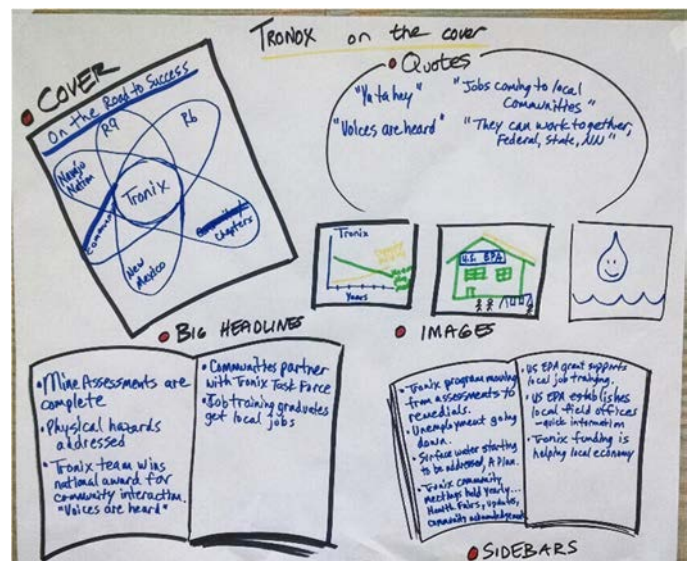 TRONOX on the cover
COVER
On the Road to Success
R9
R6
Navajo
Nation
Tronix
Chapters
New
Mexico
Quotes
"Ya ta hey"
"Jobs coming to local
Communities"
"Voices are heard"
"They can work together,
Federal, State, NN"
Tronix
Years
U.S. EPA
BIG HEADLINES
• Mine Assessments are
complete
• Physical hazards
addressed
• Tronix team wins
national award for
community interaction.
"Voices are heard"
• Communities partner
with Tronix Task Force
• Job training graduates
get local jobs
IMAGES
• Tronix program moving
from assessments to
remedials.
• Unemployment going
down.
• Surface water starting
to be addressed, A Plan.
• Tronix community
meetings held yearly...
Health Fairs, updates,
community acknowledgement
• US EPA grant supports
local job training.
• US EPA establishes
local field offices
- quick information
• Tronix funding is
helping local economy
SIDEBARS